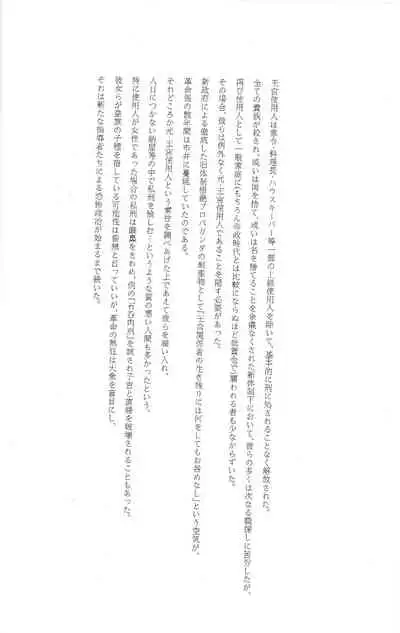 王宮使用人は家令・料理長・ハウスキーパー等一部の上級使用人を除いて、基本的に刑に処されることなく解放された。
全ての貴族が殺され、或いは国を捨て、或いは名を捨てることを余儀なくされた新体制下において、彼らの多くは次なる職探しに苦労したが、
再び使用人として一般家庭に（もちろん帝政時代とは比較にならぬほど低賃金で）雇われる者も少なからずいた。
その場合、彼らは例外なく元・王宮使用人であることを隠す必要があった。
新政府による徹底した旧体制拒絶プロパガンダの副産物として『王宮関係者の生き残りには何をしてもお咎めなし』という空気が、
革命後の数年間は市井に蔓延していたのである。
それどころか元・王宮使用人という素性を調べあげた上であえて彼らを雇い入れ、
人目につかない納屋等の中で私刑を愉しむ…というような質の悪い人間も多かったという。
特に使用人が女性であった場合の私刑は醜悪をきわめ、例の『石谷肉刑』を課され子宮と直腸を破壊されることもあった。
彼女らが皇族の子種を宿している可能性は皆無と言っていいが、革命の熱狂は大衆を盲目にし、
それは新たな指導者たちによる恐怖政治が始まるまで続いた。